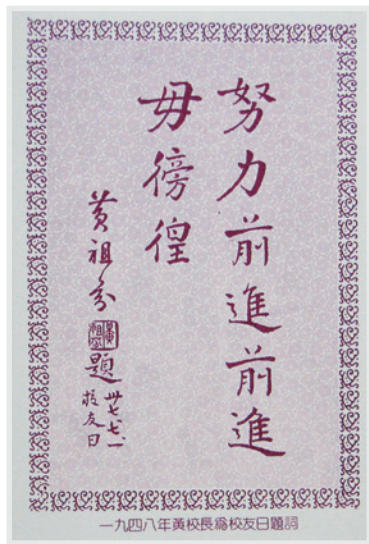 努力前進前進
毋徬徨
黃祖芬題
卅七、七、一
校友日
一九四八年黃校長為校友日題詞